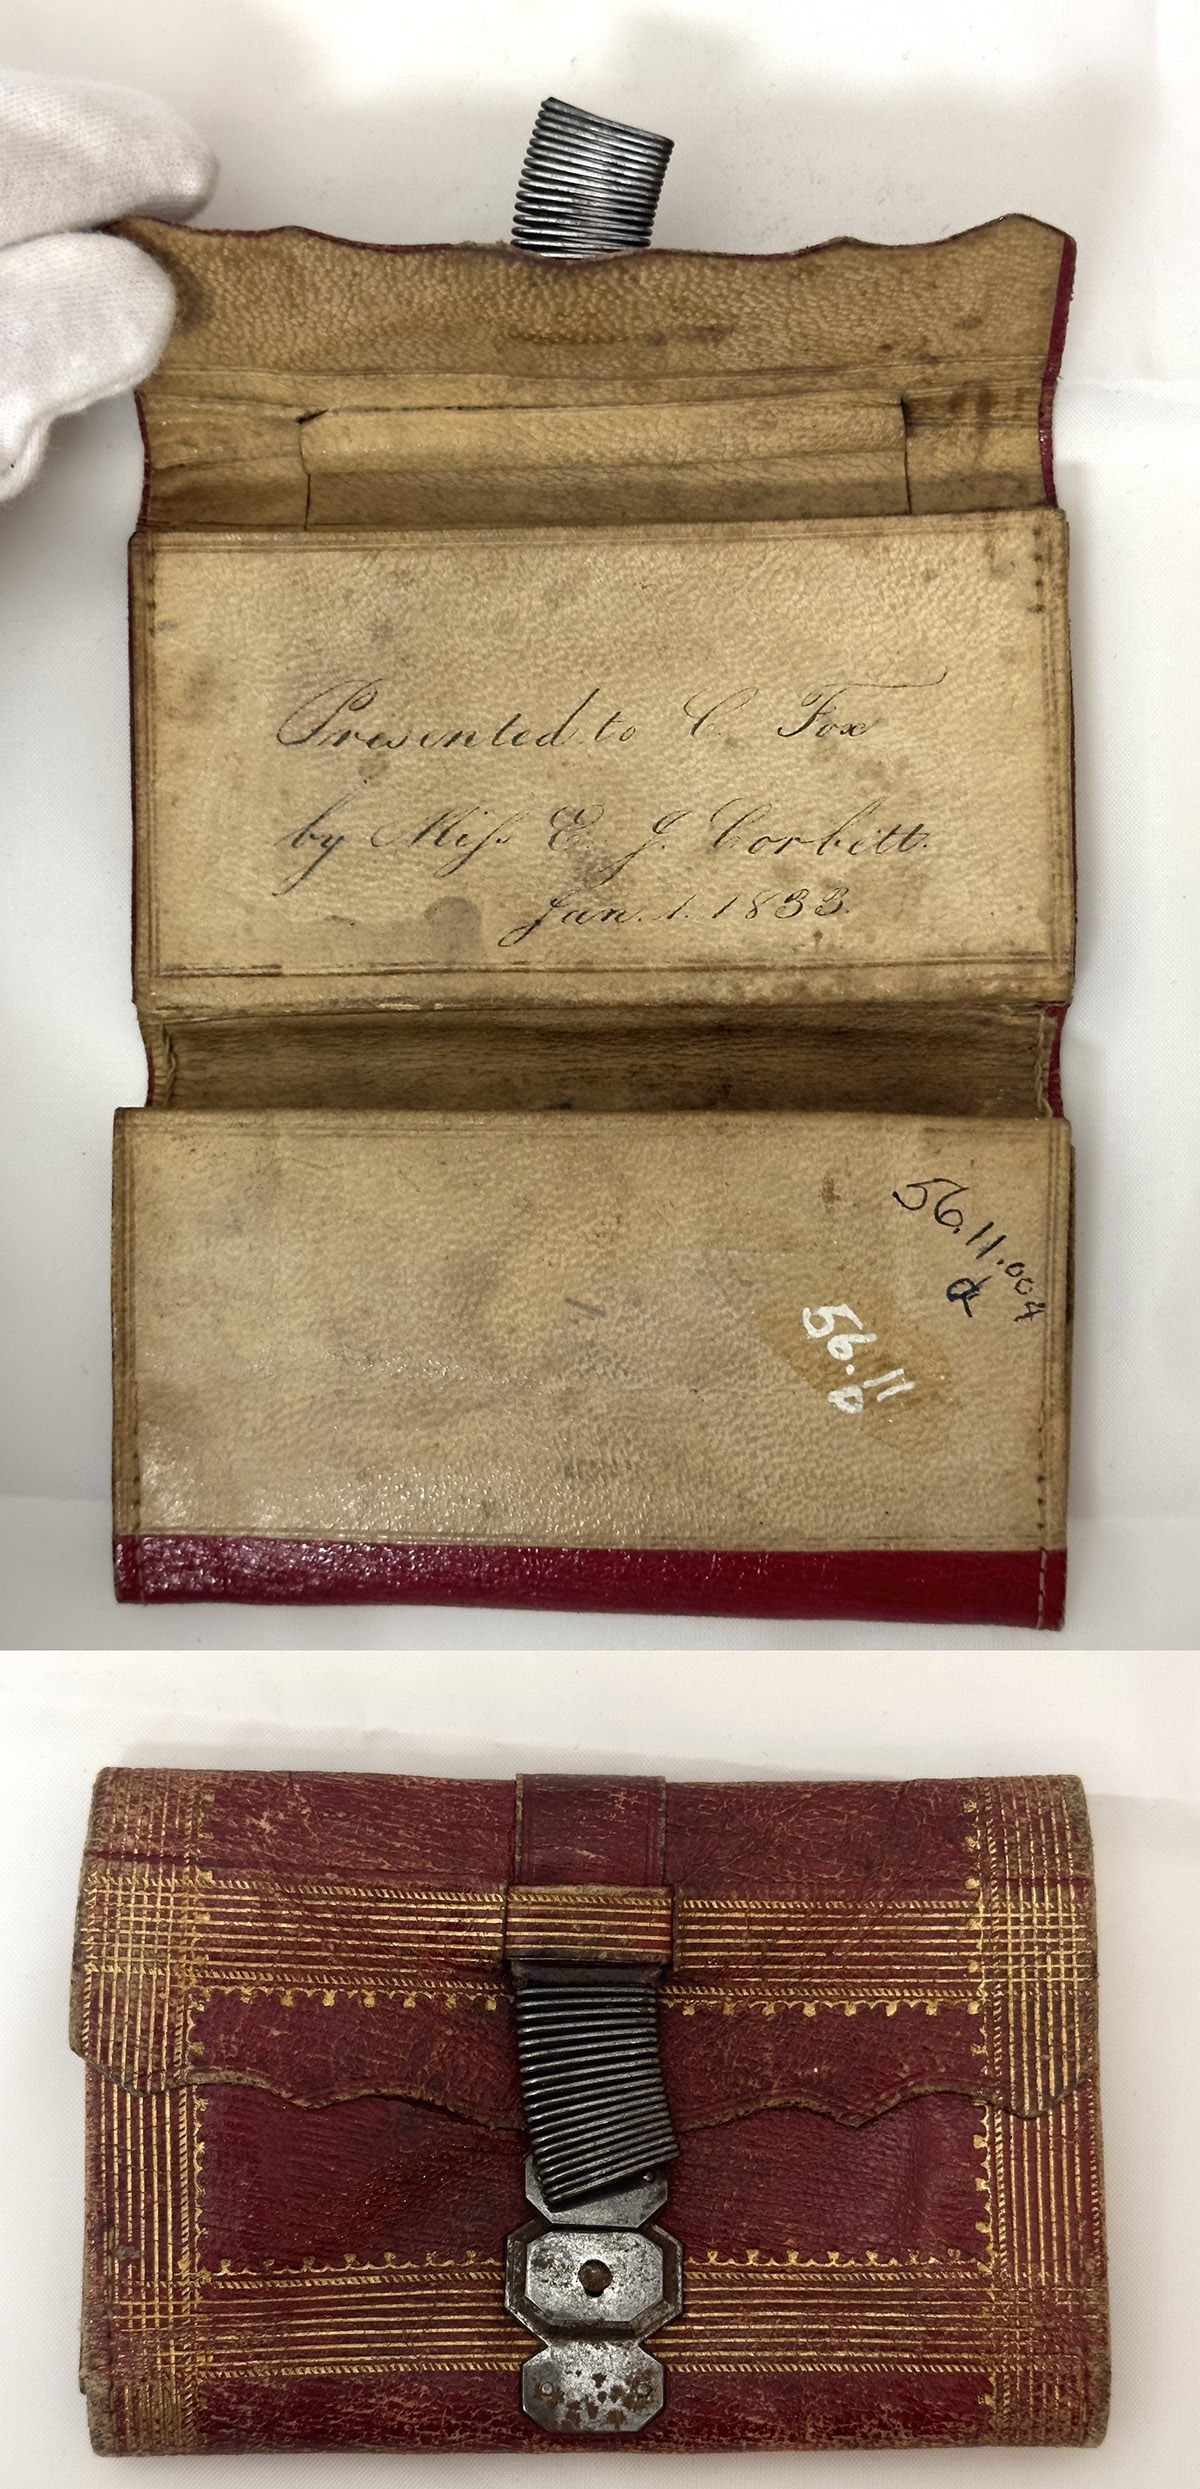 Presented to C. Fox
by Miſs E. J. Corbett.
Jan. 1. 1833.
56.11.004
a
56.11
D